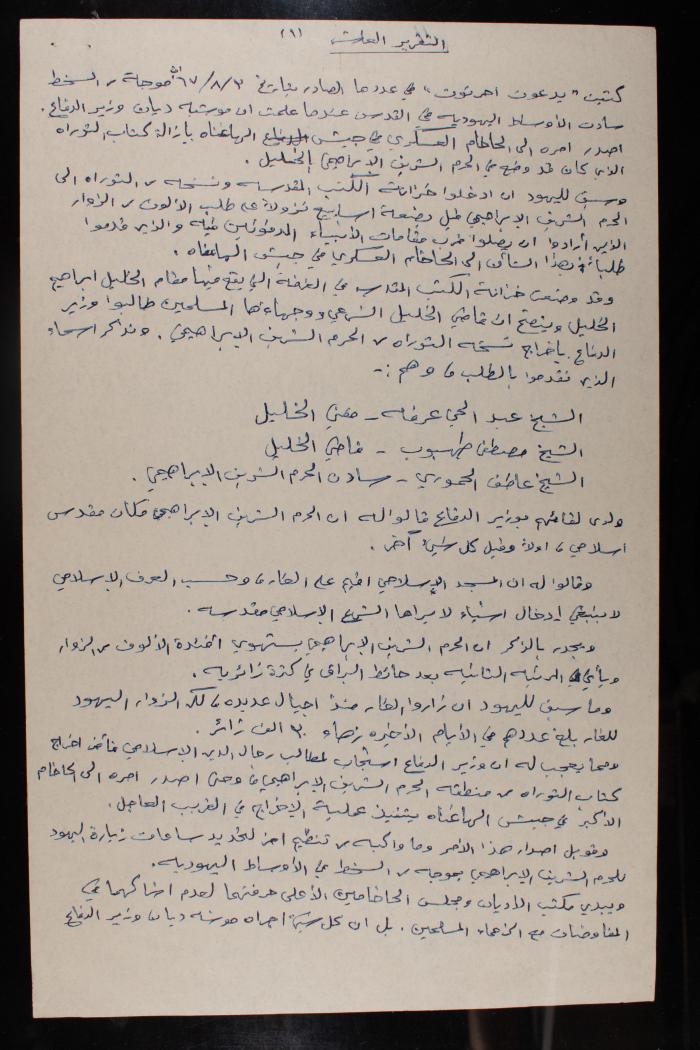 التقرير العاشر (١)
كتبت "يدعوت احرنوت" في عددها الصادر بتاريخ ٦٧/٨/٣ موجة من السخط
سادت الأوساط اليهودية في القدس عندما علمت ان موشه ديان وزير الدفاع.
اصدر امره الى الحاخام العسكري في جيش الهاغناه بازالة كتاب التوراه
الذي كان قد وضع في الحرم الشريف الابراهيمي بالخليل.
وسبق لليهود ان ادخلوا خزانة الكتب المقدسه ونسخه من التوراه الى
الحرم الشريف الابراهيمي قبل بضعة اسابيع نزولا على طلب الألوف من الزوار
الذين أرادوا ان يصلوا قرب مقامات الأنبياء المدفونين فيه والذين قدموا
طلباً بهذا الشأن الى الحاخام العسكري في جيش الهاغناه.
وقد وضعت خزانة الكتب المقدسه في الغرفة التي يقع فيها مقام الخليل ابراهيم
الخليل ويتضح ان قاضي الخليل الشرعي ووجهاءها المسلمين طالبوا وزير
الدفاع باخراج نسخة التوراه من الحرم الشريف الابراهيمي. ونذكر اسماء
الذين تقدموا بالطلب وهم :-
الشيخ عبد الحي عرفه - مفتي الخليل
الشيخ مصطفى طهبوب - قاضي الخليل
الشيخ عاطف الحموري - سادن الحرم الشريف الابراهيمي.
ولدى لقائهم بوزير الدفاع قالوا له ان الحرم الشريف الابراهيمي مكان مقدس
اسلامي اولا وقبل كل شيء آخر.
وقالوا له ان المسجد الإسلامي اقيم على الغار وحسب العرف الإسلامي
لا ينبغي ادخال اشياء لا يراها الشرع الإسلامي مقدسه.
ويجدر بالذكر ان الحرم الشريف الابراهيمي يستهوي افئدة الألوف من الزوار
ويأتي في المرتبه الثانيه بعد حائط البراق في كثرة زائريه.
وما سبق لليهود ان زاروا الغار منذ اجيال عديده لكن الزوار اليهود
للغار بلغ عددهم في الأيام الأخيره زهاء ٣٠ الف زائر.
ومما يعجب له ان وزير الدفاع استجاب لمطالب رجال الدين الإسلامي اخراج
كتاب التوراه من منطقه الحرم الشريف الابراهيمي وحتى اصدر امره الى الحاخام
الأكبر في جيش الهاغناه بتنفيذ عملية الإخراج في القريب العاجل.
وقوبل اصدار هذا الأمر وما واكبه من تنظيم آخر لتحديد ساعات زيارة اليهود
للحرم الشريف الابراهيمي بموجه من السخط في الأوساط اليهوديه.
ويبدي مكتب الأديان ومجلس الحاخامين الأعلى حرقتهما لعدم اشراكهما في
المفاوضات مع الزعماء المسلمين. بل ان كل شيء اجراه موشه ديان وزير الدفاع